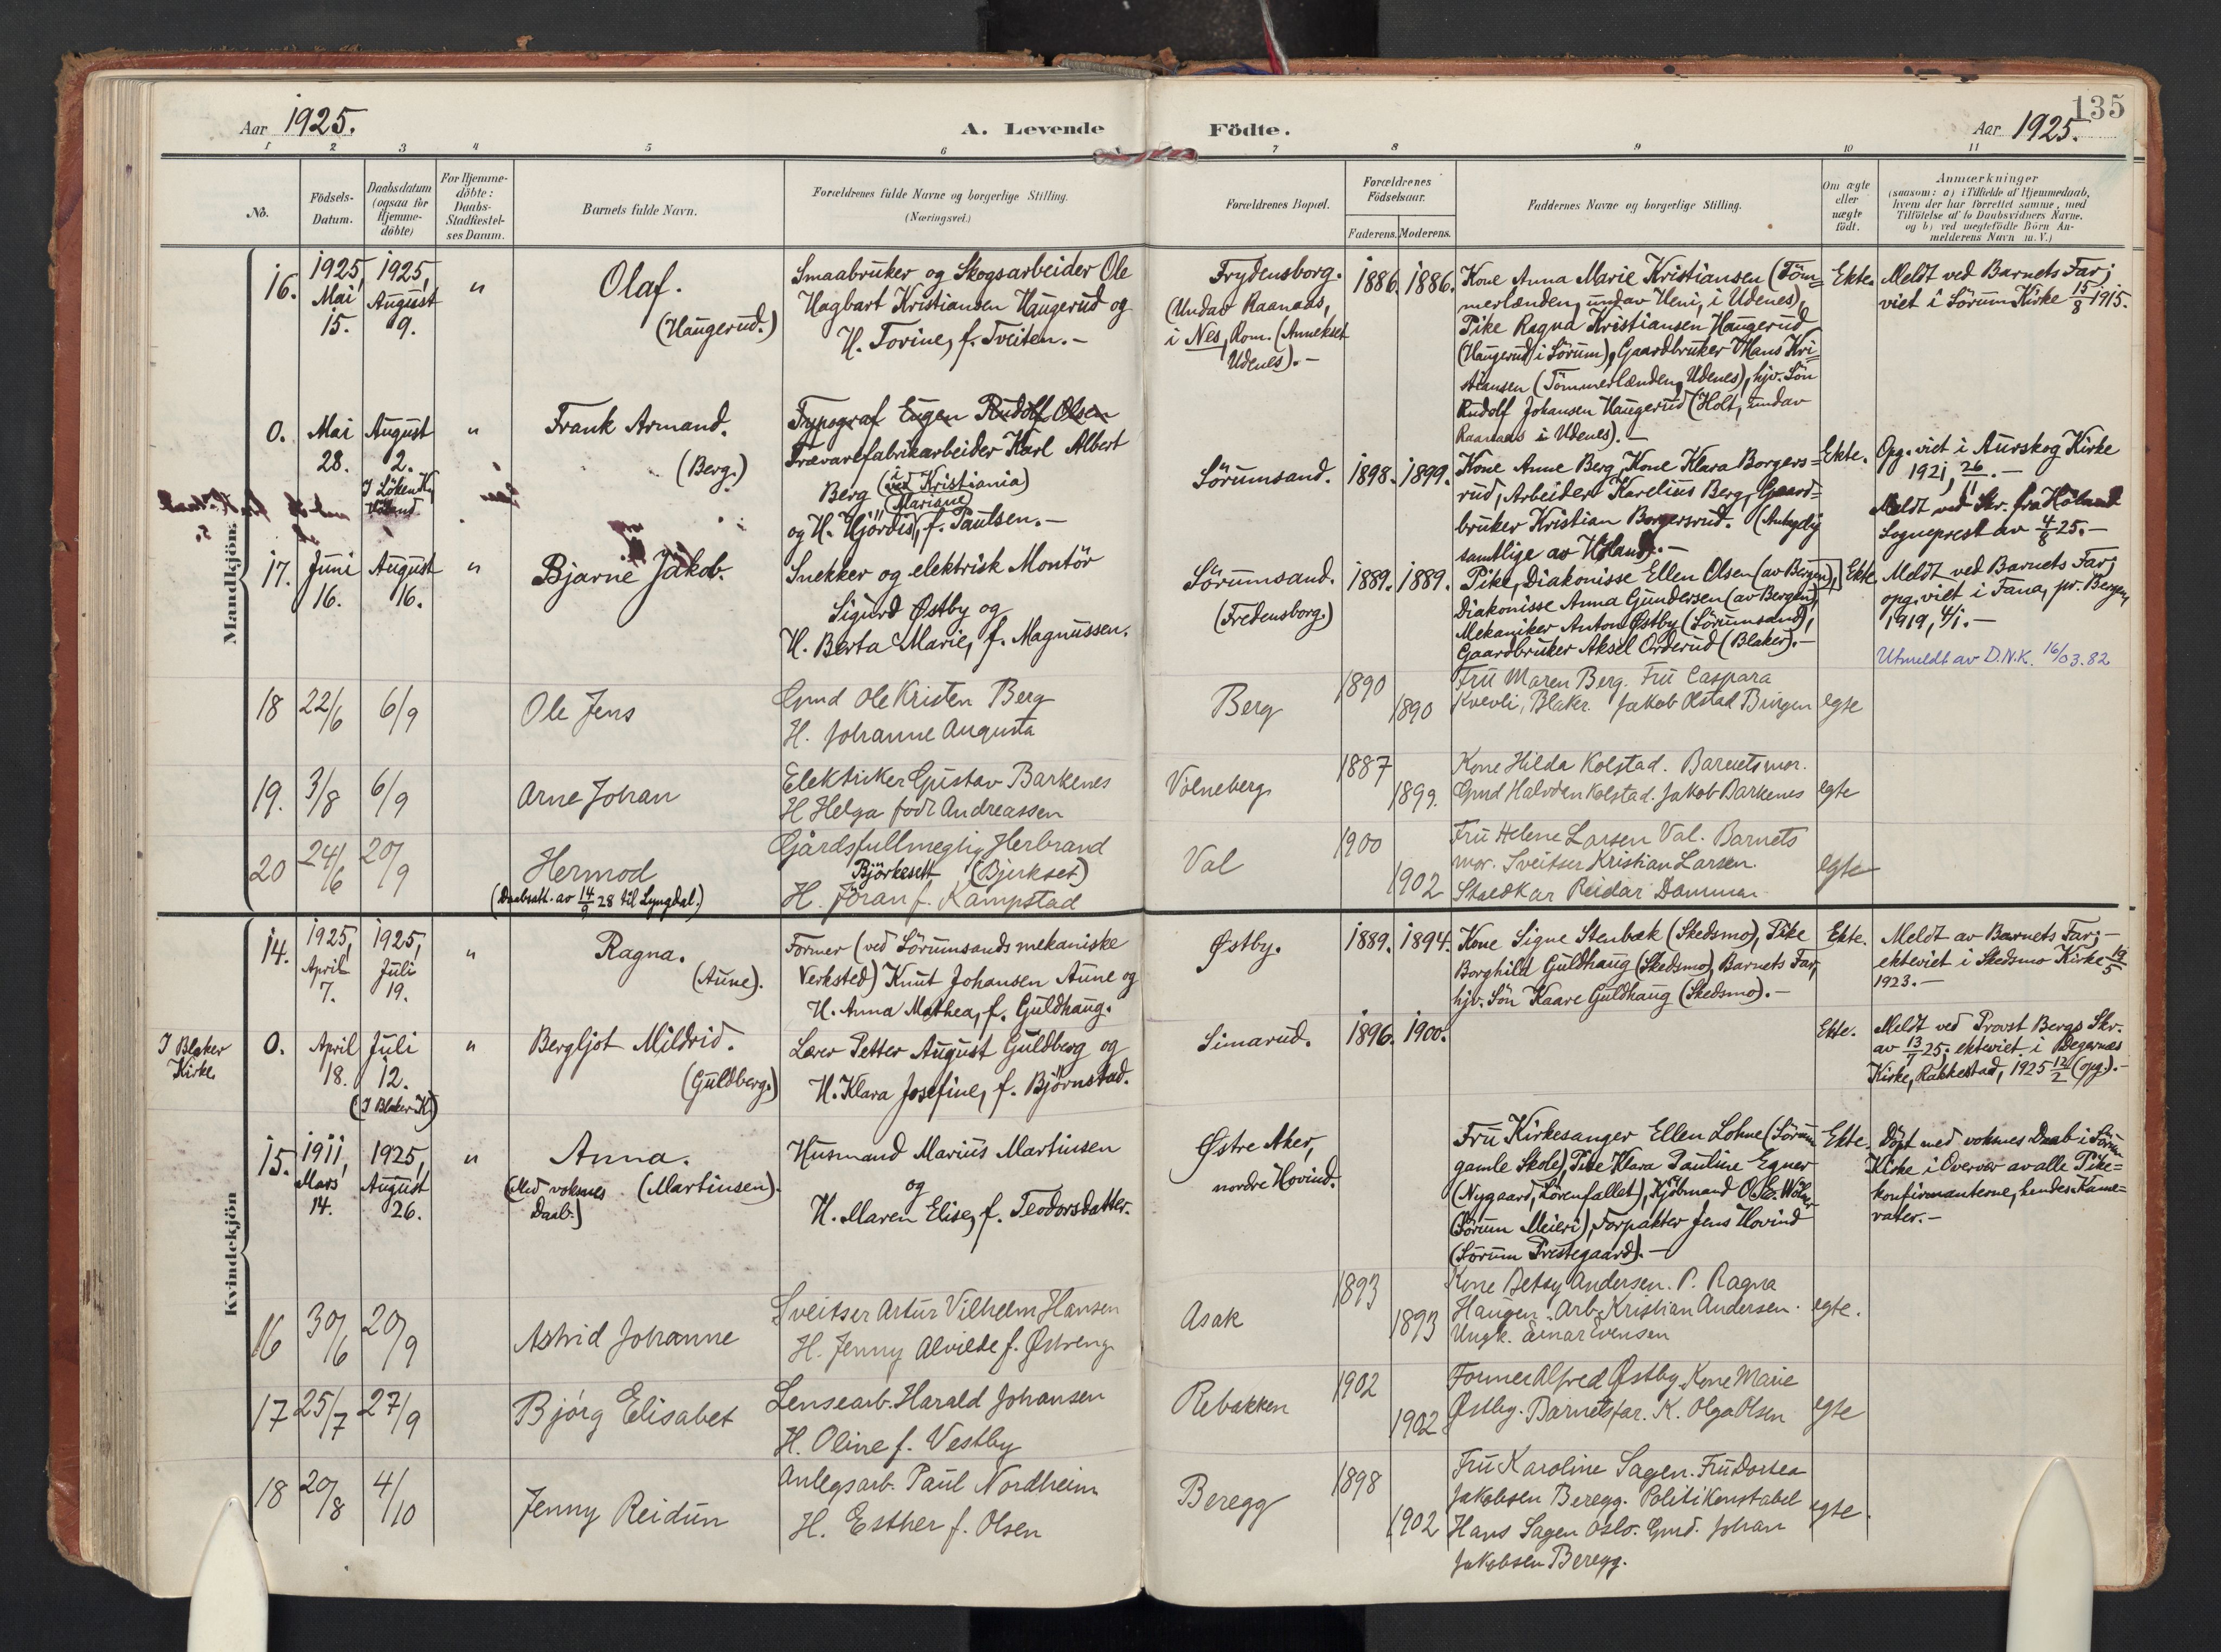 135
Aar 1925.
A. Levende
Födte.
Aar 1925.
1 2 3 4 5 6 7 8 9 10 11
No.
Födsels-
Datum.
Daabsdatum
(ogsaa for
Hjemme-
döbte)
For Hjemme-
döbte:
Daabs-
Stadfæstel-
ses Datum.
Barnets fulde Navn.
Forældrenes fulde Navne og borgerlige Stilling.
(Næringsvei.)
Forældrenes Bopæl.
Forældrenes
Födselsaar.
Faderens. Moderens.
Faddernes Navne og borgerlige Stilling.
Om ægte
eller
uægte
födt.
Anmærkninger
(saasom: a) i Tilfælde af Hjemmedaab,
hvem der har forrettet samme, med
Tilföielse af to Daabsvidners Navne,
og b) ved uegtefödte Börn An-
melderens Navn m.V.)
Mandkjön
16.
1925,
Mai
15.
1925,
August
9.
"
Olaf.
(Haugerud.)
Smaabruker og Skogsarbeider Ole
Hagbart Kristiansen Haugerud og
H. Torine, f. Tveiten. -
Frydensborg.
(Undav Raanaas,
i Nes, Rom. (Annekset
Udenes). -
1886. 1886.
Kone Anna Marie Kristiansen (Töm-
merlænden, undav Heni, i Udenes),
Pike Ragna Kristiansen Haugerud
(Haugerud i Sörum), Gaardbruker Hans Kri-
stiansen (Tömmerlænden, Udenes), hjv. Sön
Rudolf Johansen Haugerud (Holt, undav
Raanaas i Udenes). -
Ekte.
Meldt ved Barnets Far;
viet i Sörum Kirke 15/8 1915.
0.
Mai
28.
August
2.
I Löken K.
Höland.
"
Frank Armand.
(Berg.)
Typograf Eugen Rudolf Olsen
Trævarefabrikarbeider Karl Albert
Berg (i Kristiania)
(Mariane)
og H. Hjördis, f. Paulsen. -
Sörumsand.
1898. 1899.
Kone Anne Berg, Kone Klara Borgers-
rud, Arbeider Karelius Berg, Gaard-
bruker Kristian Borgersrud. (Antydig
samtlige av Höland). -
Ekte.
Opg. viet i Aurskog Kirke
1921, 26/11. -
Meldt ved Skr. fra Höland
Sogneprest av 4/8 25. -
17.
Juni
16.
August
16.
"
Bjarne Jakob.
Snekker og elektrisk Montör
Sigurd Østby og
H. Berta Marie, f. Magnussen.
Sörumsand.
(Fredensborg.)
1889. 1889.
Pike, Diakonisse Ellen Olsen (av Bergen),
Diakonisse Anna Gundersen (av Bergen),
Mekaniker Anton Østby (Sörumsand),
Gaardbruker Aksel Orderud (Blaker). -
Ekte
Meldt ved Barnets Far;
opg. viet i Fana, pr. Bergen,
1919, 4/1. -
Utmeldt av D.N.K. 16/03.82
18
22/6
6/9
Ole Jens
Gmd Ole Kristen Berg
H. Johanne Augusta
Berg
1890
1890
Fru Maren Berg. Fru Caspara
Kvevli, Blaker. Jakob Olstad Bingen
egte
19.
3/8
6/9
Arne Johan
Elektriker Gustav Barkenes
H Helga födt Andreassen
Volneberg
1887
1899.
Kone Hilda Kolstad. Barnets mor.
Gmd Halvden Kolstad. Jakob Barkenes
egte
20
24/6
20/9
Hermod
(Daabsatt. av 14/9 28 til Lyngdal.)
Gjårdsfullmegtig Herbrand
Björkesett (Bjerkset)
H. Jöran f. Kampstad
Val
1900
1902
Fru Helene Larsen Val. Barnets
mor. Sveitser Kristian Larsen.
Staldkar Reidar Dammen
egte
Kvindekjön
14.
1925,
April
7.
1925,
Juli
19.
"
Ragna.
(Aune).
Former (ved Sörumsands mekaniske
Verksted) Knut Johansen Aune og
H. Anna Mathea, f. Guldhaug.
Østby.
1889. 1894.
Kone Signe Stenbæk (Skedsmo), Pike
Borghild Guldhaug (Skedsmo), Barnets Far,
hjv. Sön Kaare Guldhaug (Skedsmo). -
Ekte.
Meldt av Barnets Far; -
ekteviet i Skedsmo Kirke 19/5
1923. -
I Blaker
Kirke
0.
April
18.
Juli
12.
(I Blaker K.)
"
Bergljot Mildrid.
(Guldberg.)
Lærer Petter August Guldberg og
H. Klara Josefine, f. Björnstad.
Simarud.
1896. 1900.
Ekte.
Meldt ved Provst Bergs Skr.
av 13/7 25; ekteviet i Degernes
Kirke, Rakkestad, 1925 12/2 (opg.). -
15.
1911,
Mars
14.
1925,
August
26.
"
Anna.
(Med voksnes
Daab.)
(Martinsen).
Husmand Marius Martinsen
og
H. Maren Elise, f. Teodorsdatter.
Østre Aker,
nordre Hovind.
Fru Kirkesanger Ellen Lohne (Sörum
gamle Skole), Pike Klara Pauline Egner
(Nygaard, Lörenfallet), Kjöbmand O.
(Sörum Meieri), Forpakter Jens Hovind
(Sörum Prestegaard). -
Ekte.
Döpt med voksnes Daab i Sörum
Kirke i Overvær av alle Pike-
konfirmanterne, hendes Kame-
rater. -
16
30/6
20/9
Astrid Johanne
Sveitser Artur Vilhelm Hansen
H. Jenny Alvilde f. Østreng
Asak
1893
1893
Kone Betsy Andersen. P. Ragna
Haugen. Arb. Kristian Andersen.
Ungk. Einar Evensen
egte.
17
25/7
27/9
Bjørg Elisabet
Lensearb. Harald Johansen
H. Oline f. Vestby
Rebakken
1902
1902
Former Alfred Østby, Kone Marie
Østby. Barnets far. K. Olga Olsen
egte
18
20/8
4/10
Jenny Reidun
Anlegsarb. Paul Nordheim
H. Esther f. Olsen
Beregg
1898
1902
Fru Karoline Sagen. Fru Dortea
Jakobsen Beregg. Politikonstabel
Hans Sagen Oslo. Gmd. Johan
Jakobsen Beregg.
egte.